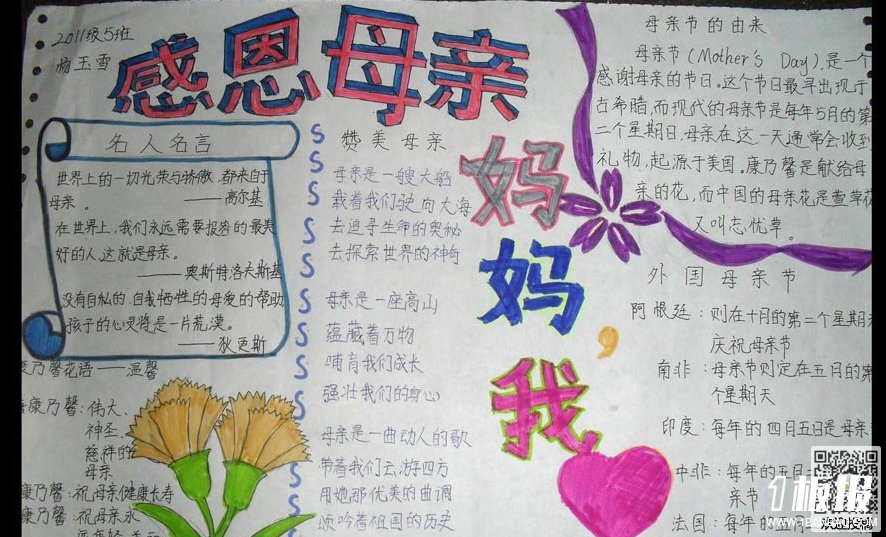 2011级5班
杨玉雪
感恩母亲
名人名言
世界上的一切光荣与骄傲,都来自
母亲。
——高尔基
在世界上,我们永远需要报答的最美
好的人,这就是母亲。
——奥斯特洛夫斯基
没有自私的,自我牺牲的母爱的帮助,
孩子的心灵将是一片荒漠。
——狄更斯
乃馨花语——温馨
康乃馨:伟大、
神圣、
慈祥的
母亲
康乃馨:祝母亲健康长寿
康乃馨:祝母亲永
赞美母亲
母亲是一艘大船
载着我们驶向大海
去追寻生命的奥秘
去探索世界的神奇
母亲是一座高山
蕴藏着万物
哺育我们成长
强壮我们的身心
母亲是一曲动人的歌
带着我们云游四方
用她那优美的曲调
颂吟着祖国的历史
妈妈,我
母亲节的由来
母亲节(Mother's Day),是一个
感谢母亲的节日。这个节日最早出现于
古希腊,而现代的母亲节是每年5月的第
二个星期日,母亲在这一天通常会收到
礼物,起源于美国。康乃馨是献给母
亲的花,而中国的母亲花是萱草花
又叫忘忧草。
外国母亲节
阿根廷:则在十月的第二个星期
庆祝母亲节
南非:母亲节则定在五月的第
个星期天
印度:每年的四月五日是母亲
中非:每年的五月
亲节
法国:每年的五月
1板报
WWW.1BANBAO.COM